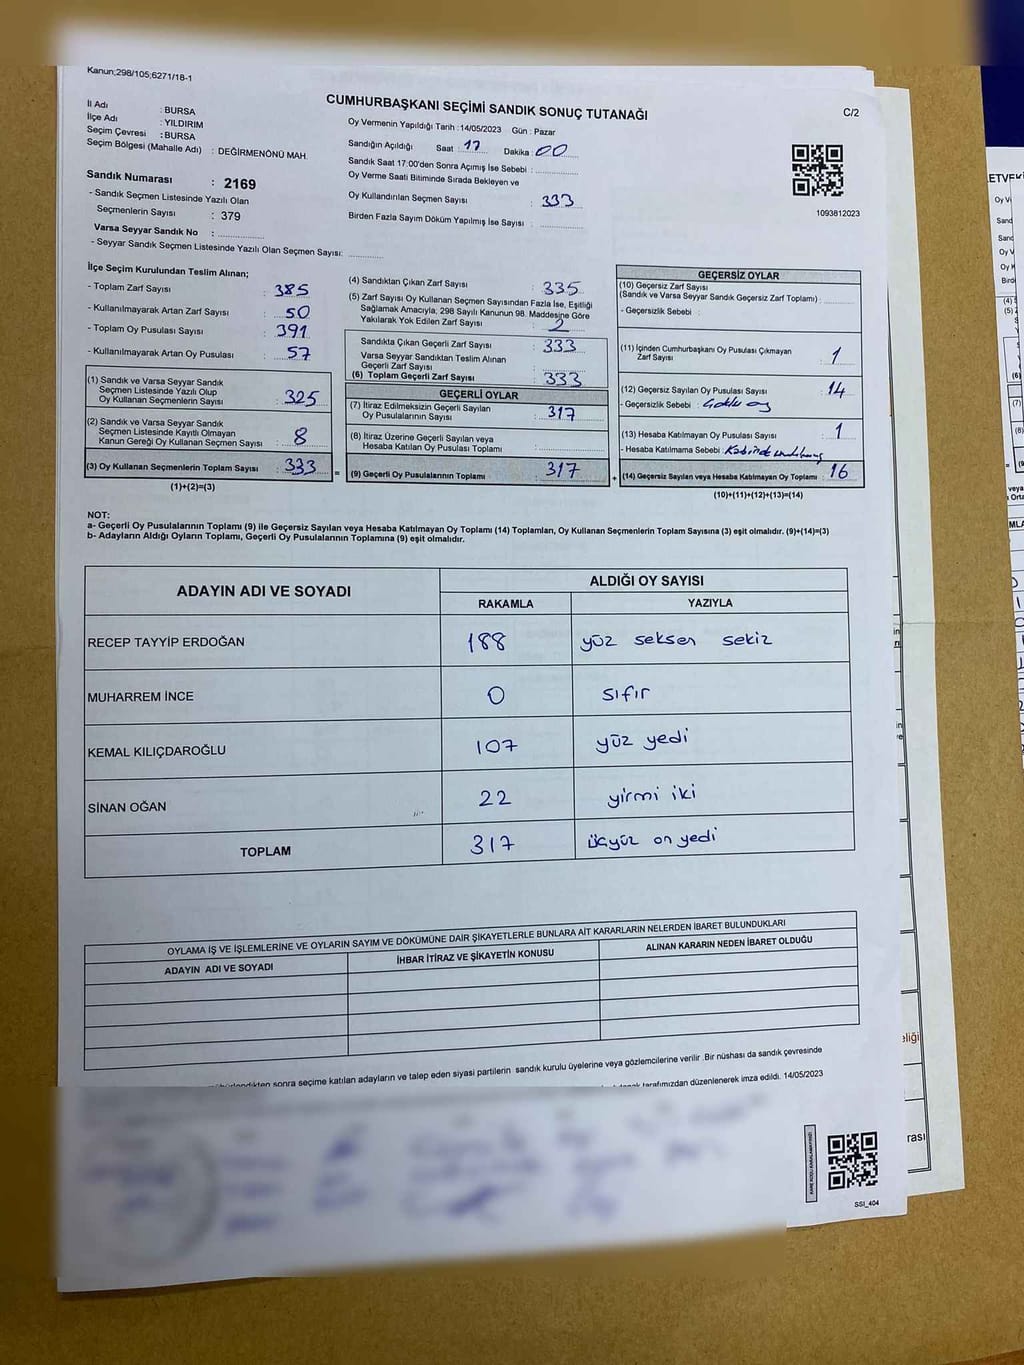 Kanun;298/105;6271/18-1
CUMHURBAŞKANI SEÇİMİ SANDIK SONUÇ TUTANAĞI
C/2
İl Adı : BURSA
İlçe Adı : YILDIRIM
Seçim Çevresi : BURSA
Seçim Bölgesi (Mahalle Adı) : DEĞİRMENÖNÜ MAH.
Sandık Numarası : 2169
- Sandık Seçmen Listesinde Yazılı Olan
Seçmenlerin Sayısı : 379
Varsa Seyyar Sandık No : ..............
- Seyyar Sandık Seçmen Listesinde Yazılı Olan Seçmen Sayısı: ............
Oy Vermenin Yapıldığı Tarih :14/05/2023 Gün : Pazar
Sandığın Açıldığı Saat : 17 Dakika : 00
Sandık Saat 17:00'den Sonra Açmış İse Sebebi : ..............
Oy Verme Saati Bitiminde Sırada Bekleyen ve
Oy Kullandırılan Seçmen Sayısı : 333
Birden Fazla Sayım Döküm Yapılmış İse Sayısı : ..............
1093812023
İlçe Seçim Kurulundan Teslim Alınan;
- Toplam Zarf Sayısı : 385
- Kullanılmayarak Artan Zarf Sayısı : 50
- Toplam Oy Pusulası Sayısı : 391
- Kullanılmayarak Artan Oy Pusulası : 57
(1) Sandık ve Varsa Seyyar Sandık
Seçmen Listesinde Yazılı Olup
Oy Kullanan Seçmenlerin Sayısı : 325
(2) Sandık ve Varsa Seyyar Sandık
Seçmen Listesinde Kayıtlı Olmayan
Kanun Gereği Oy Kullanan Seçmen Sayısı : 8
(3) Oy Kullanan Seçmenlerin Toplam Sayısı : 333 =
(1)+(2)=(3)
(4) Sandıktan Çıkan Zarf Sayısı : 335
(5) Zarf Sayısı Oy Kullanan Seçmen Sayısından Fazla İse, Eşitliği
Sağlamak Amacıyla, 298 Sayılı Kanunun 98. Maddesine Göre
Yakılarak Yok Edilen Zarf Sayısı : 2
Sandıkta Çıkan Geçerli Zarf Sayısı : 333
Varsa Seyyar Sandıktan Teslim Alınan
Geçerli Zarf Sayısı :
(6) Toplam Geçerli Zarf Sayısı : 333
GEÇERLİ OYLAR
(7) İtiraz Edilmeksizin Geçerli Sayılan
Oy Pusulalarının Sayısı : 317
(8) İtiraz Üzerine Geçerli Sayılan veya
Hesaba Katılan Oy Pusulası Toplamı : ..............
(9) Geçerli Oy Pusulalarının Toplamı : 317 +
GEÇERSİZ OYLAR
(10) Geçersiz Zarf Sayısı
(Sandık ve Varsa Seyyar Sandık Geçersiz Zarf Toplamı) : ........
- Geçersizlik Sebebi :
(11) İçinden Cumhurbaşkanı Oy Pusulası Çıkmayan
Zarf Sayısı : 1
(12) Geçersiz Sayılan Oy Pusulası Sayısı : 14
- Geçersizlik Sebebi : oy
(13) Hesaba Katılmayan Oy Pusulası Sayısı : 1
- Hesaba Katılmama Sebebi :
(14) Geçersiz Sayılan veya Hesaba Katılmayan Oy Toplamı : 16
(10)+(11)+(12)+(13)=(14)
NOT:
a- Geçerli Oy Pusulalarının Toplamı (9) ile Geçersiz Sayılan veya Hesaba Katılmayan Oy Toplamı (14) Toplamları, Oy Kullanan Seçmenlerin Toplam Sayısına (3) eşit olmalıdır. (9)+(14)=(3)
b- Adayların Aldığı Oyların Toplamı, Geçerli Oy Pusulalarının Toplamına (9) eşit olmalıdır.
ADAYIN ADI VE SOYADI ALDIĞI OY SAYISI
RAKAMLA YAZIYLA
RECEP TAYYİP ERDOĞAN 188 yüz seksen sekiz
MUHARREM İNCE 0 sıfır
KEMAL KILIÇDAROĞLU 107 yüz yedi
SİNAN OĞAN 22 yirmi iki
TOPLAM 317 üçyüz on yedi
OYLAMA İŞ VE İŞLEMLERİNE VE OYLARIN SAYIM VE DÖKÜMÜNE DAİR ŞİKAYETLERLE BUNLARA AİT KARARLARIN NELERDEN İBARET BULUNDUKLARI
ADAYIN ADI VE SOYADI İHBAR İTİRAZ VE ŞİKAYETİN KONUSU ALINAN KARARIN NEDEN İBARET OLDUĞU
sonra seçime katılan adayların ve talep eden siyasi partilerin sandık kurulu üyelerine veya gözlemcilerine verilir .Bir nüshası da sandık çevresinde
tarafımızdan düzenlenerek imza edildi. 14/05/2023
SSI_404